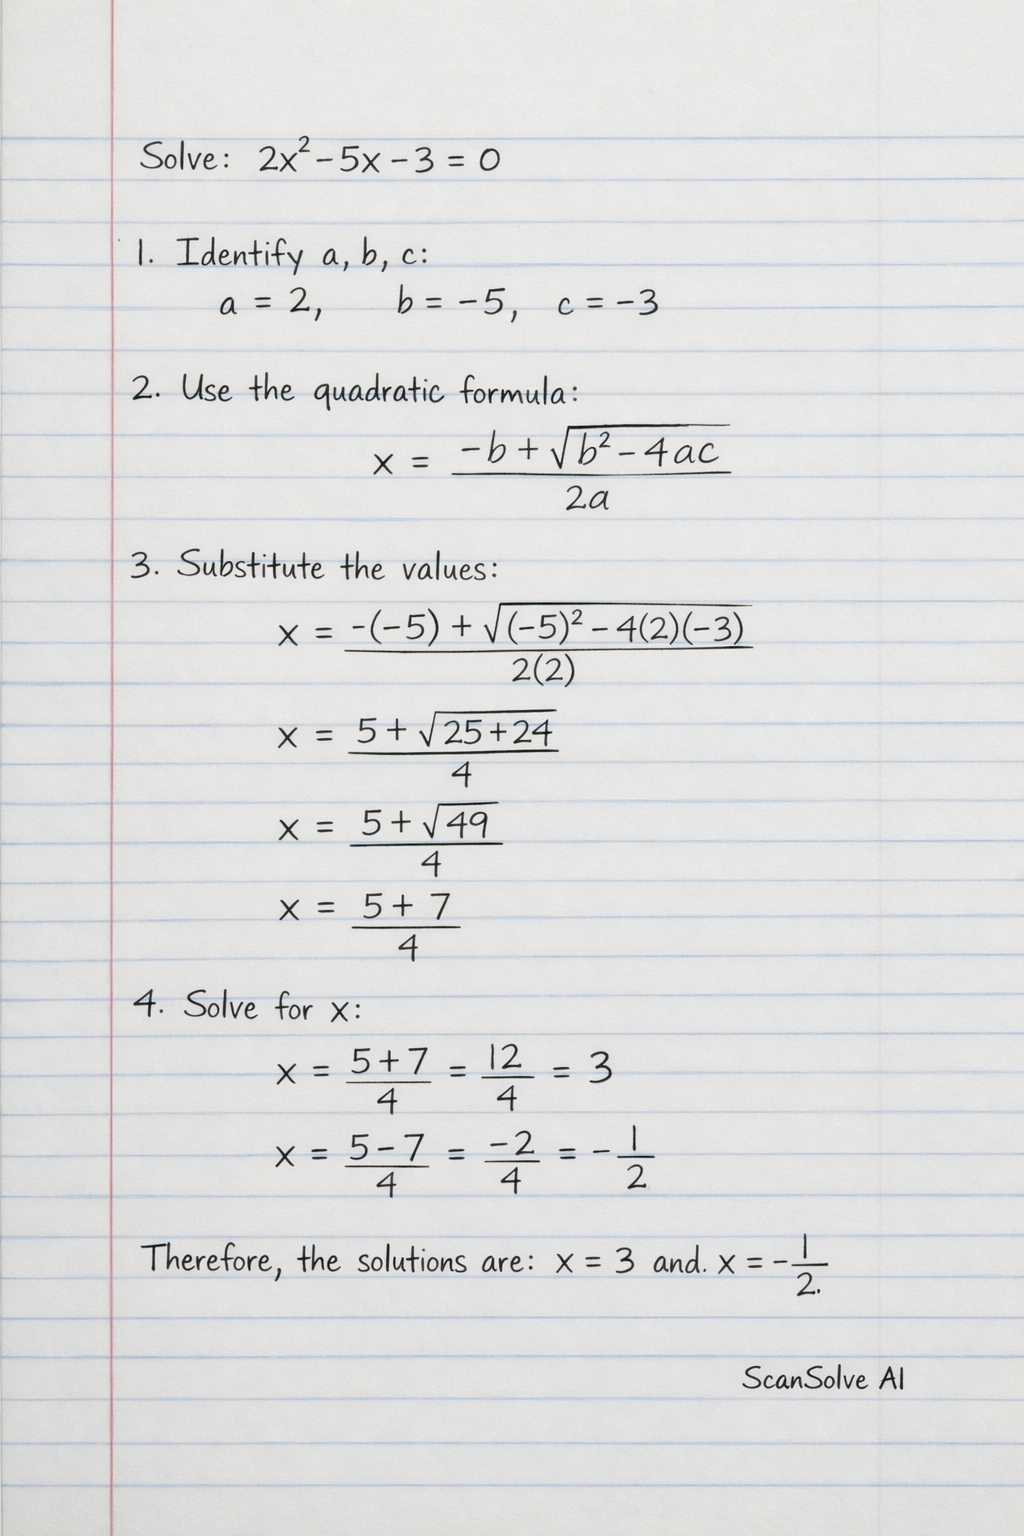 Solve: 2x² - 5x - 3 = 0
1. Identify a, b, c:
a = 2, b = -5, c = -3
2. Use the quadratic formula:
x = (-b + √(b² - 4ac)) / 2a
3. Substitute the values:
x = (-(-5) + √((-5)² - 4(2)(-3))) / 2(2)
x = (5 + √(25+24)) / 4
x = (5 + √49) / 4
x = (5 + 7) / 4
4. Solve for x:
x = (5+7)/4 = 12/4 = 3
x = (5-7)/4 = -2/4 = -1/2
Therefore, the solutions are: x = 3 and. x = -1/2.
ScanSolve AI